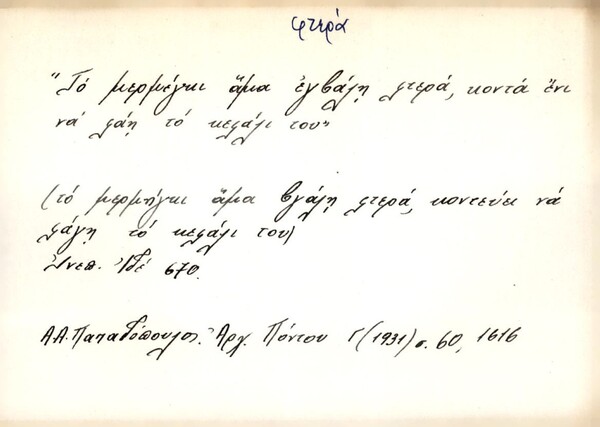 φτερά
"Τό μερμέγκι ἅμα ἐγβάλῃ φτερά, κοντά ἔνι
νά φάῃ τό κεφάλι του"
(τό μερμήγκι ἅμα βγάλῃ φτερά, κοντεύει νά
φάγῃ τό κεφάλι του)
670.
Α.Α. Παπαδόπουλος. Ἀρχ. Πόντου Γ (1931) σ. 60, 1616